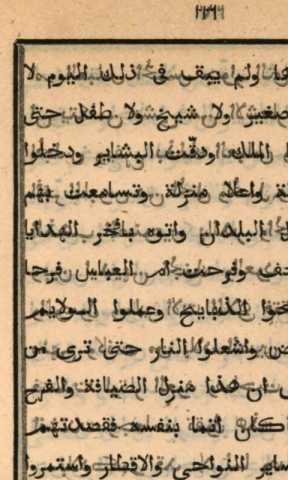 ٢٢٦
ها ولم يبق فى ذلك اليوم لا
صغير ولا شيخ ولا طفل حتى
الملك ودقّت البشاير ودخلوا
واعلا منزلة وتسامعت بهم
البلدان واتوه بافخر الهدايا
وفرحت القبايل فرحا
الذبايح وعملوا الولايم
واشعلوا النار حتى ترى من
ان هذا منزل الضيافة والفرح
بنفسه فقصدتهم
ساير النواحى والاقطار واستمروا